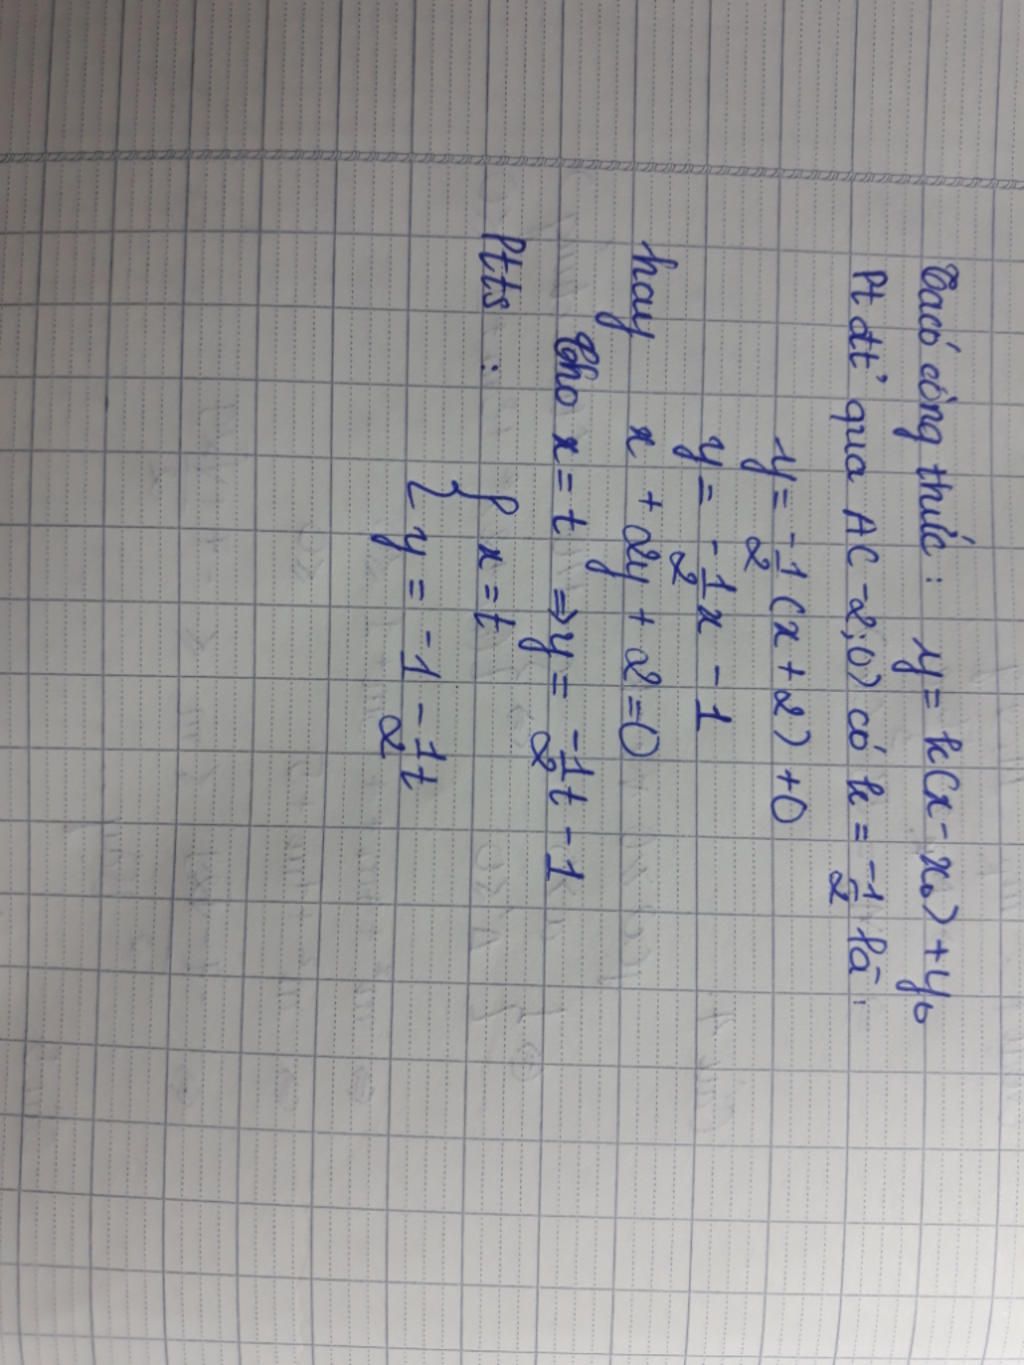 Ta có công thức: y = k(x - x₀) + y₀
Pt đt' qua A(-2;0) có k = -1/2 là:
y = -1/2 (x + 2) + 0
y = -1/2 x - 1
hay x + 2y + 2 = 0
Cho x = t ⇒ y = -1/2 t - 1
Ptts : { x = t
{ y = -1 - 1/2 t